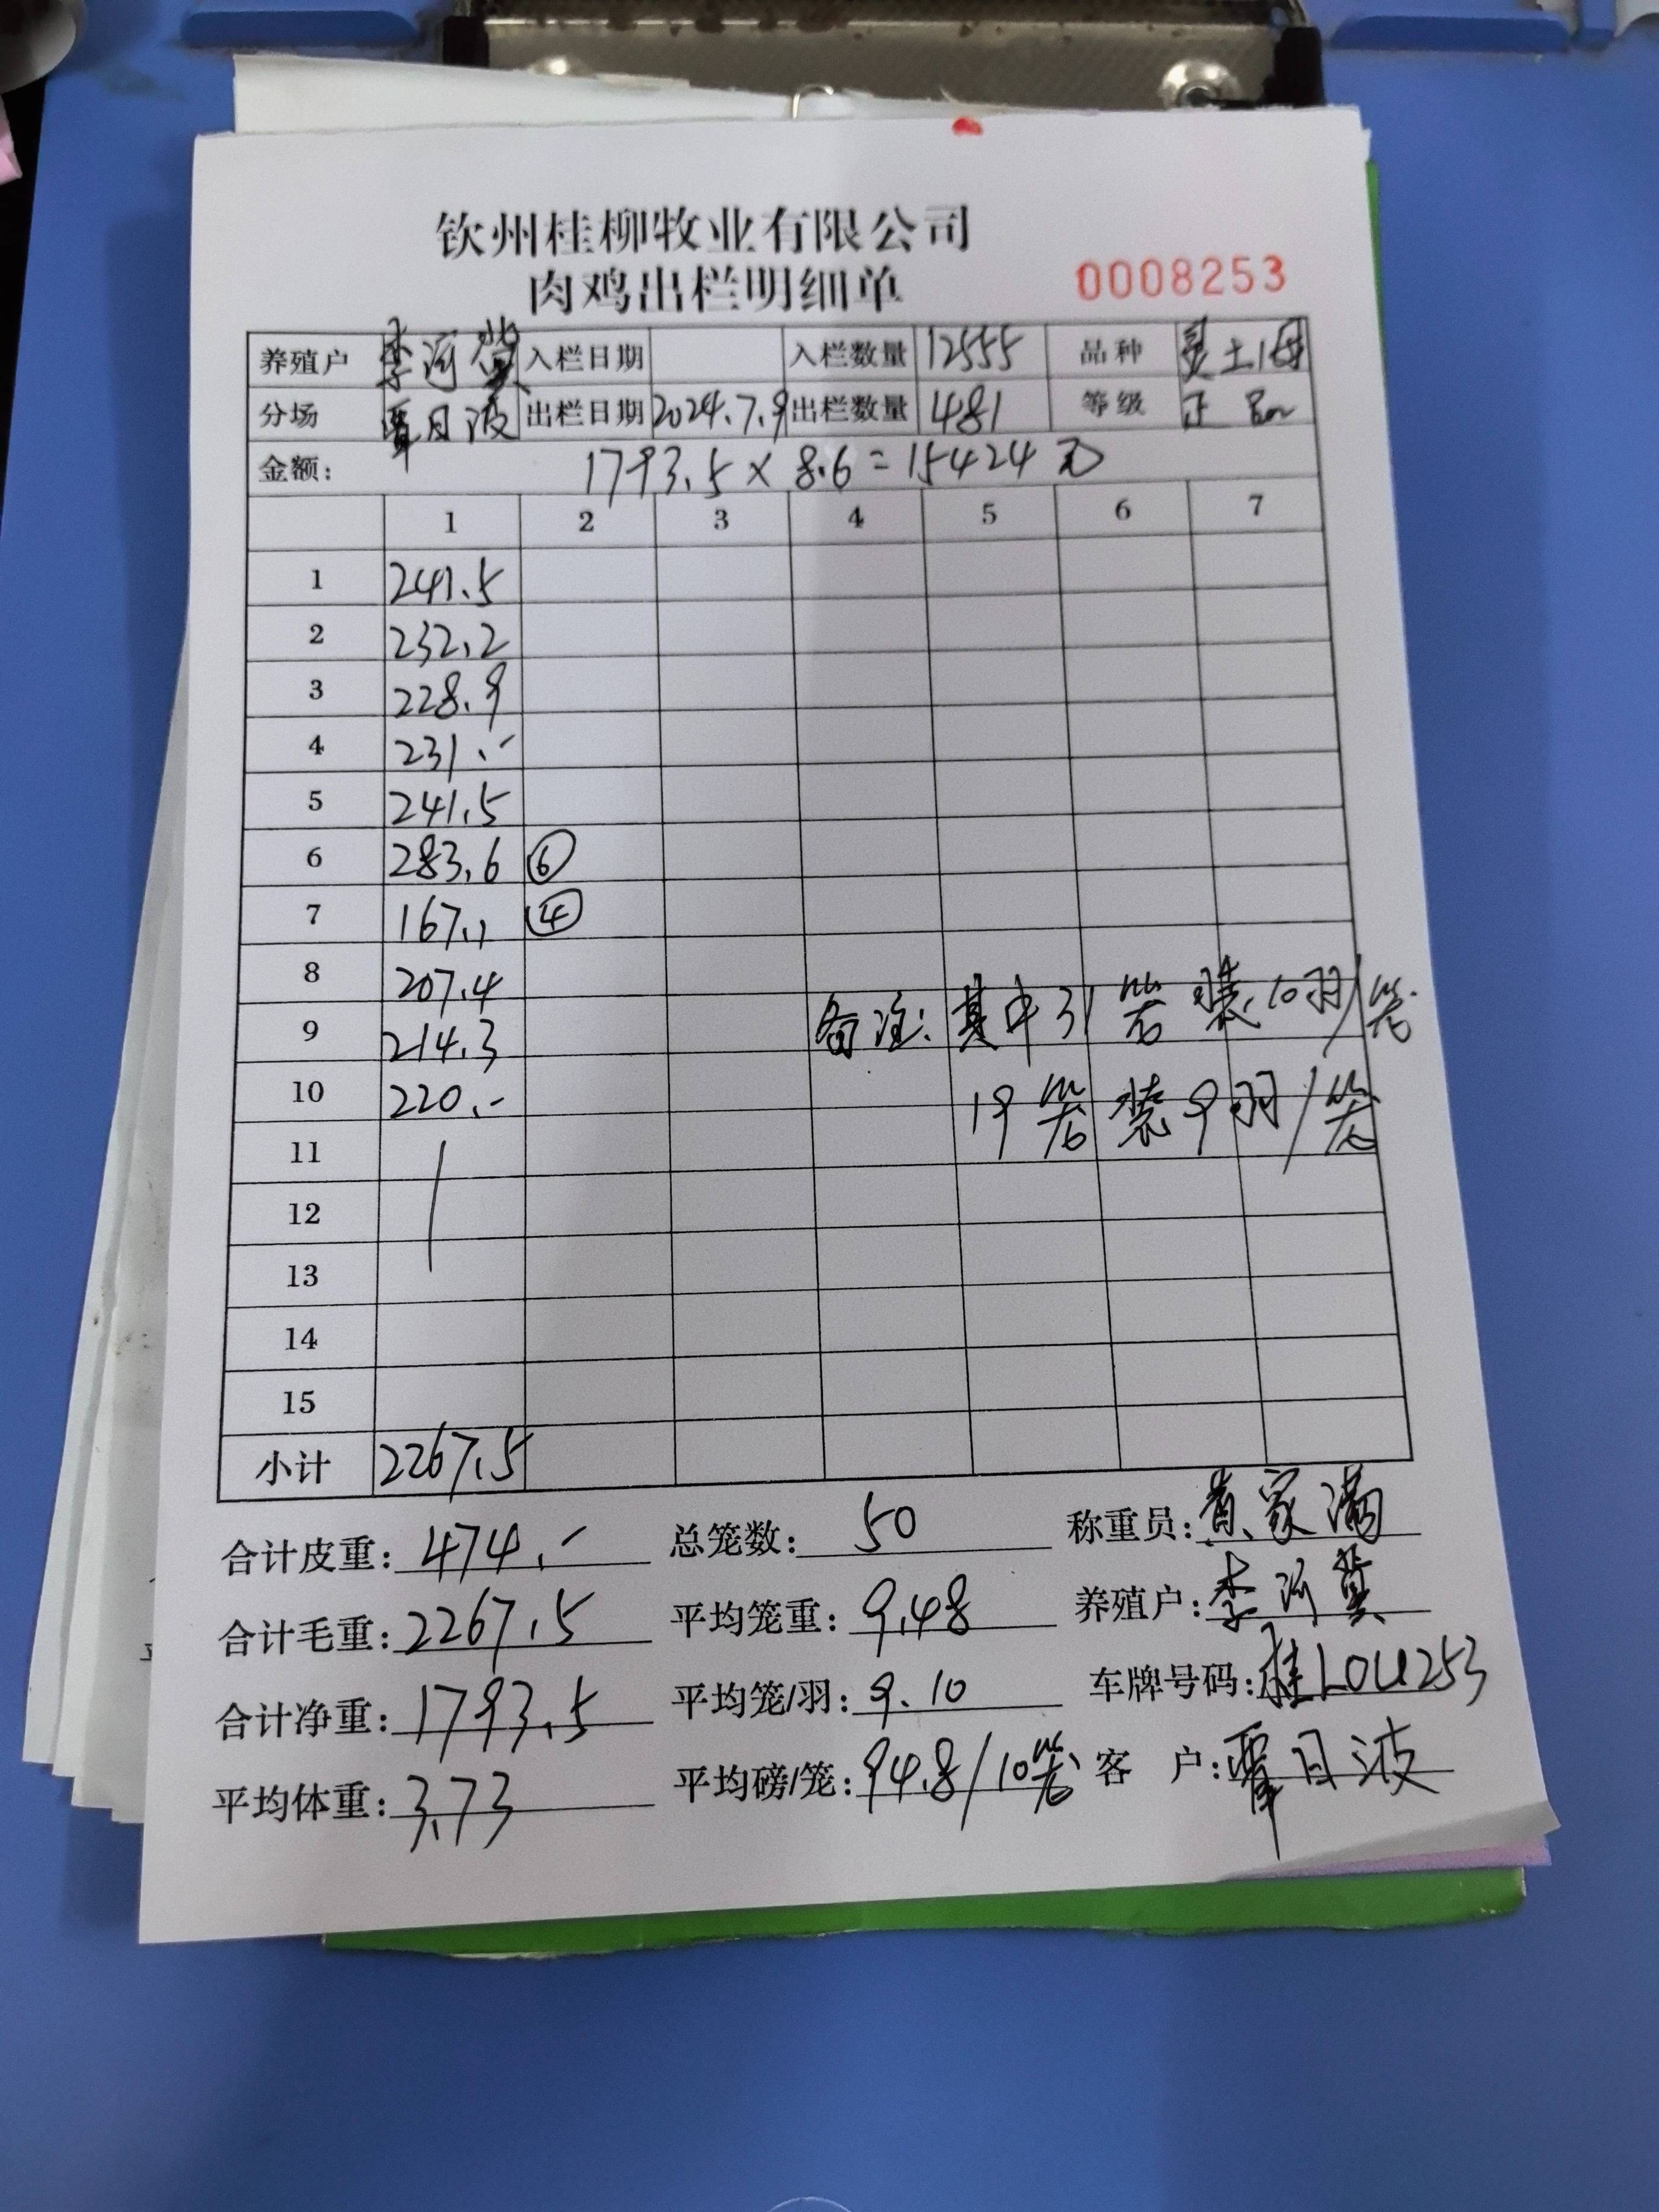 钦州桂柳牧业有限公司
肉鸡出栏明细单 0008253
养殖户 李河冀 入栏日期 入栏数量 12555 品种 灵土1母
分场 覃日波 出栏日期 2024.7.9 出栏数量 481 等级 正品
金额: 1793.5 × 8.6 = 15424元
1 2 3 4 5 6 7
1 241.5
2 232.2
3 228.9
4 231.-
5 241.5
6 283.6 ⑥
7 167.1 ④
8 207.4
9 214.3 备注: 其中31笼装10羽/笼
10 220.- 19笼装9羽/笼
11
12
13
14
15
小计 2267.5
合计皮重: 474.- 总笼数: 50 称重员: 黄家满
合计毛重: 2267.5 平均笼重: 9.48 养殖户: 李河冀
合计净重: 1793.5 平均笼/羽: 9.10 车牌号码: 桂L0U253
平均体重: 3.73 平均磅/笼: 94.8/10笼 客 户: 覃日波